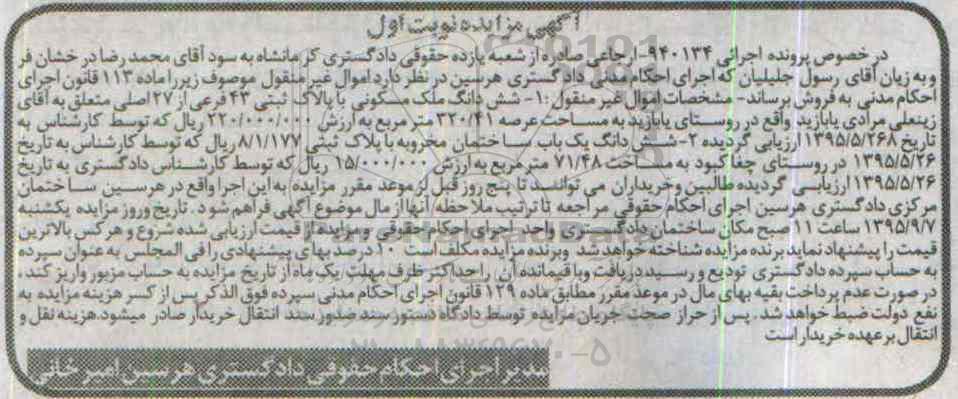 آگهی مزایده نوبت اول
در خصوص پرونده اجرائی ۹۴۰۱۳۴- ارجاعی صادره از شعبه یازده حقوقی دادگستری کرمانشاه به سود آقای محمد رضا درخشان فر
و به زیان آقای رسول جلیلیان که اجرای احکام مدنی دادگستری هرسین در نظر دارد اموال غیر منقول موصوف زیر را ماده ۱۱۳ قانون اجرای
احکام مدنی به فروش برساند- مشخصات اموال غیر منقول :۱- شش دانگ ملک مسکونی با پلاک ثبتی ۴۳ فرعی از ۲۷ اصلی متعلق به آقای
زینعلی مرادی پایازید واقع در روستای پایازید به مساحت عرصه ۳۲۰/۴۱ متر مربع به ارزش ۲۲۰/۰۰۰/۰۰۰ ریال که توسط کارشناس به
تاریخ ۱۳۹۵/۵/۲۶۸ ارزیابی گردیده ۲-شش دانگ یک باب ساختمان مخروبه با پلاک ثبتی ۸/۱/۱۷۷ ریال که توسط کارشناس به تاریخ
۱۳۹۵/۵/۲۶ در روستای چغا کبود به مساحت ۷۱/۴۸ متر مربع به ارزش ۱۵/۰۰۰/۰۰۰ ریال که توسط کارشناس دادگستری به تاریخ
۱۳۹۵/۵/۲۶ ارزیابی گردیده طالبین وخریداران می توانند تا پنج روز قبل از موعد مقرر مزایده به این اجرا واقع در هرسین ساختمان
مرکزی دادگستری هرسین اجرای احکام حقوقی مراجعه تا ترتیب ملاحظه آنها از مال موضوع آگهی فراهم شود . تاریخ وروز مزایده یکشنبه
۱۳۹۵/۹/۷ ساعت ۱۱ صبح مکان ساختمان دادگستری واحد اجرای احکام حقوقی و مزایده از قیمت ارزیابی شده شروع و هر کس بالاترین
قیمت را پیشنهاد نماید برنده مزایده شناخته خواهد شد وبرنده مزایده مکلف است ۱۰ درصد بهای پیشنهادی را فی المجلس به عنوان سپرده
به حساب سپرده دادگستری تودیع و رسید دریافت وباقیمانده آن را حداکثر ظرف مهلت یک ماه از تاریخ مزایده به حساب مزبور واریز کند.
در صورت عدم پرداخت بقیه بهای مال در موعد مقرر مطابق ماده ۱۲۹ قانون اجرای احکام مدنی سپرده فوق الذکر پس از کسر هزینه مزایده به
نفع دولت ضبط خواهد شد . پس از حراز صحت جریان مزایده توسط دادگاه دستور سند صدور سند انتقال خریدار صادر میشود.هزینه نقل و
انتقال بر عهده خریدار است
مدیر اجرای احکام حقوقی دادگستری هرسین امیر خانی